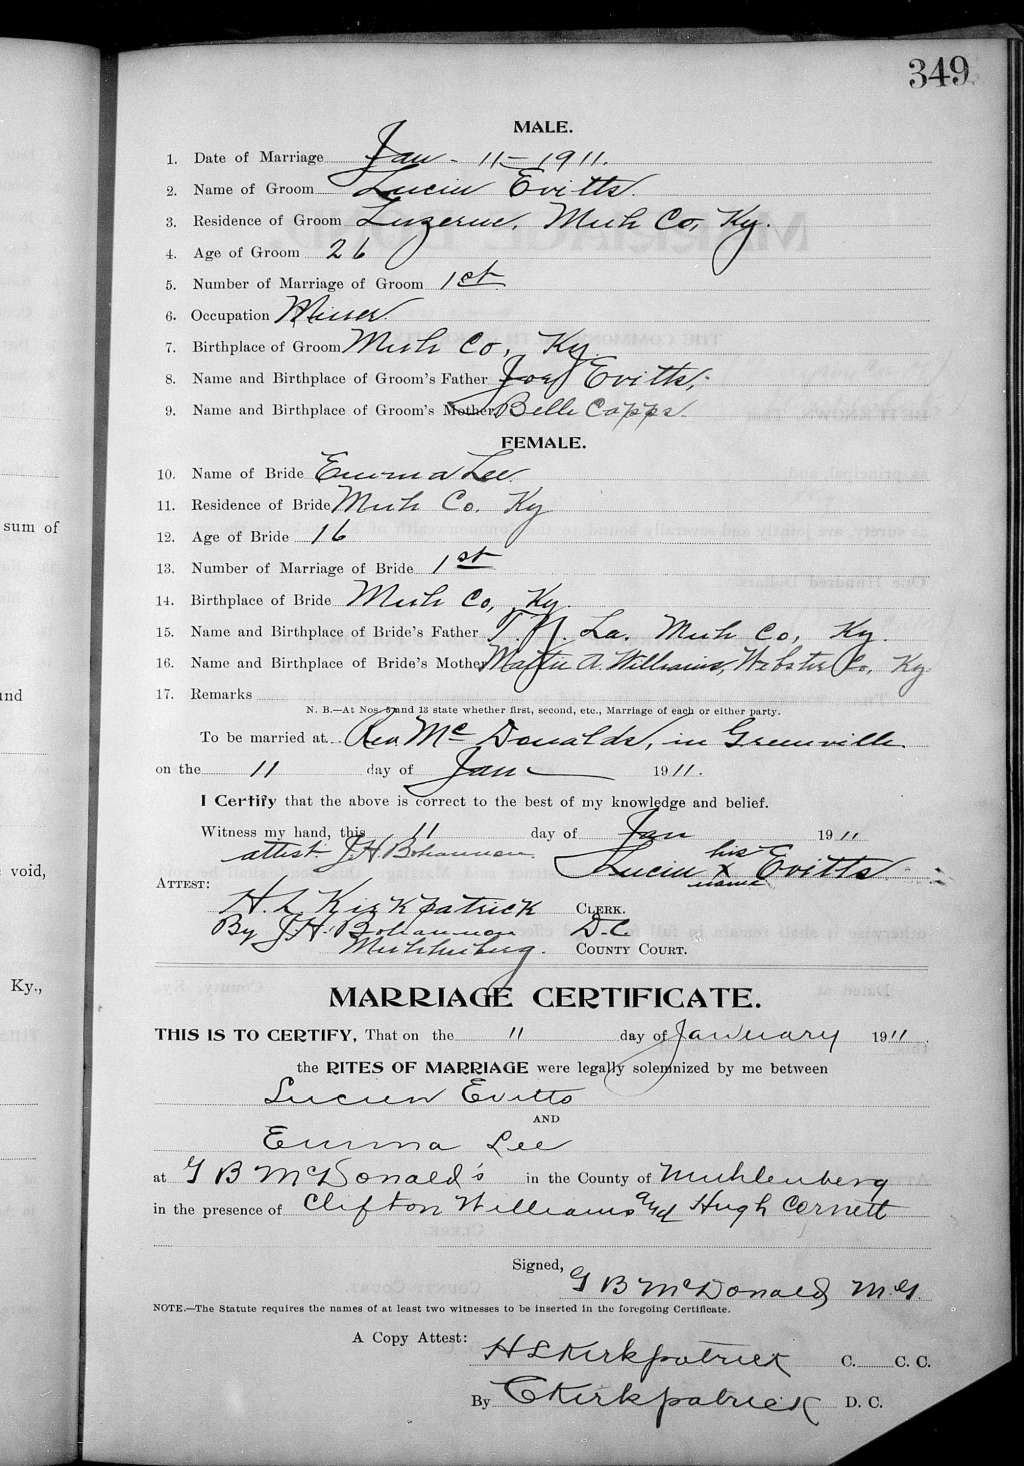 349
MALE.
1. Date of Marriage Jan - 11 - 1911.
2. Name of Groom Lucien Evitts
3. Residence of Groom Luzerne, Muh Co, Ky.
4. Age of Groom 26
5. Number of Marriage of Groom 1st
6. Occupation Miner
7. Birthplace of Groom Muh Co, Ky.
8. Name and Birthplace of Groom's Father Joe Evitts.
9. Name and Birthplace of Groom's Mother Belle Capps.
FEMALE.
10. Name of Bride Emma Lee.
11. Residence of Bride Muh Co. Ky
12. Age of Bride 16
13. Number of Marriage of Bride 1st
14. Birthplace of Bride Muh Co, Ky.
15. Name and Birthplace of Bride's Father T. N. La. Muh Co, Ky.
16. Name and Birthplace of Bride's Mother Mattie A. Williams, Webster Co, Ky
17. Remarks
N. B.—At Nos. 5 and 13 state whether first, second, etc., Marriage of each or either party.
To be married at Rev Mc Donalds, in Greenville.
on the 11 day of Jan 1911.
I Certify that the above is correct to the best of my knowledge and belief.
Witness my hand, this 11 day of Jan 1911
attest J H Bohannon his
Lucien x Evitts
name
ATTEST:
H. L Kirkpatrick CLERK.
By J H. Bohannon D.C.
Muhlenburg. COUNTY COURT.
MARRIAGE CERTIFICATE.
THIS IS TO CERTIFY, That on the 11 day of January 1911
the RITES OF MARRIAGE were legally solemnized by me between
Lucien Evitts
AND
Emma Lee
at G B McDonald's in the County of Muhlenberg
in the presence of Clifton Williams and Hugh Cornett
Signed, G B McDonald M.G.
NOTE.—The Statute requires the names of at least two witnesses to be inserted in the foregoing Certificate.
A Copy Attest: H L Kirkpatrick C. C. C.
By C Kirkpatrick D. C.
sum of
and
void,
Ky.,